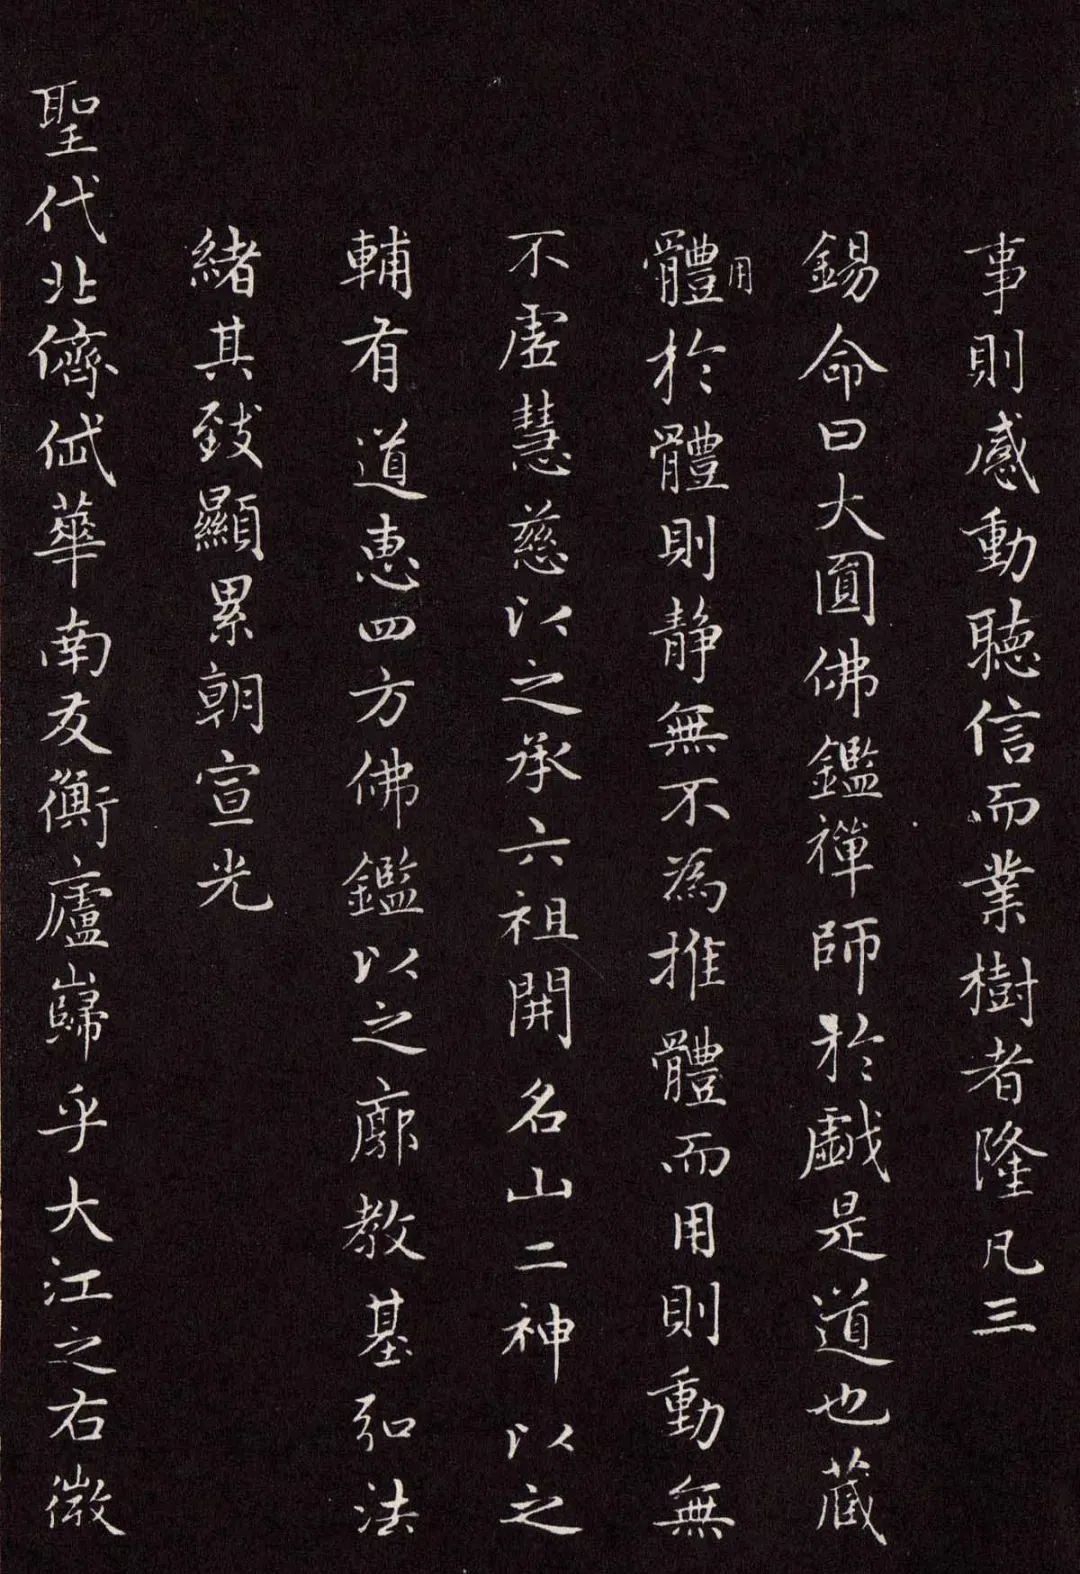 事則感動聽信而業樹者隆凡三
錫命曰大圓佛鑑禪師於戲是道也蔵
體用於體則静無不為推體而用則動無
不虗慧慈以之承六祖開名山二神以之
輔有道惠四方佛鑑以之廓教基弘法
緒其致顯累朝宣光
聖代北儕伭華南友衡廬巋乎大江之右徵